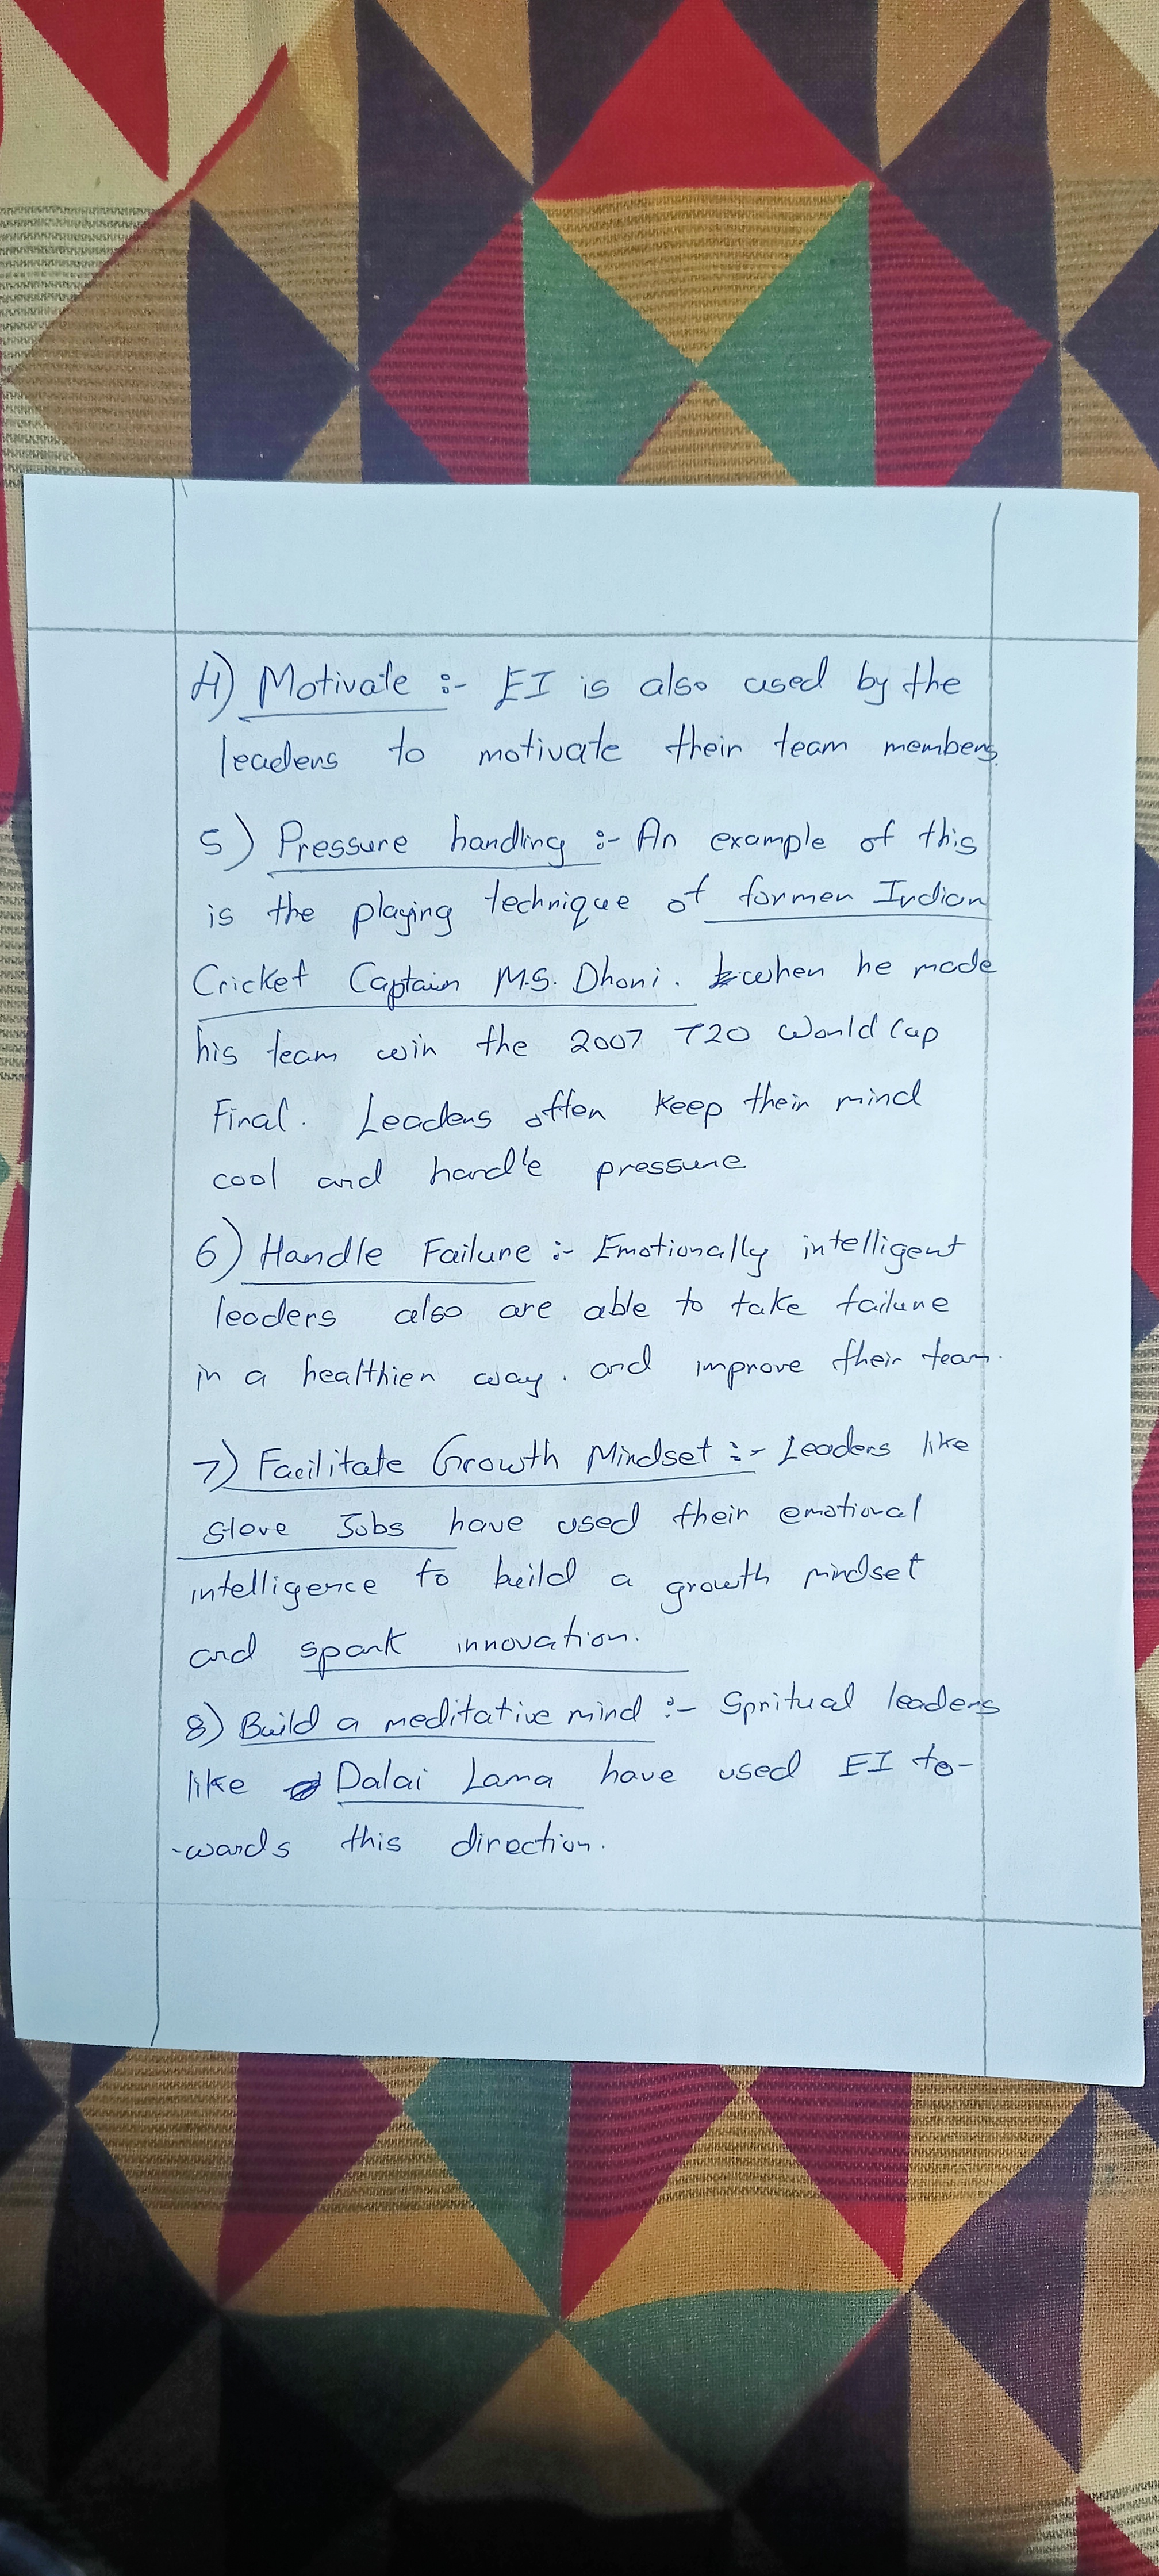 4) Motivate :- EI is also used by the
leaders to motivate their team members.
5) Pressure handling :- An example of this
is the playing technique of former Indian
Cricket Captain M.S. Dhoni. when he made
his team win the 2007 T20 World Cup
Final. Leaders often keep their mind
cool and handle pressure
6) Handle Failure :- Emotionally intelligent
leaders also are able to take failure
in a healthier way. and improve their team.
7) Facilitate Growth Mindset :- Leaders like
Steve Jobs have used their emotional
intelligence to build a growth mindset
and spark innovation.
8) Build a meditative mind :- Spritual leaders
like Dalai Lama have used EI to-
-wards this direction.